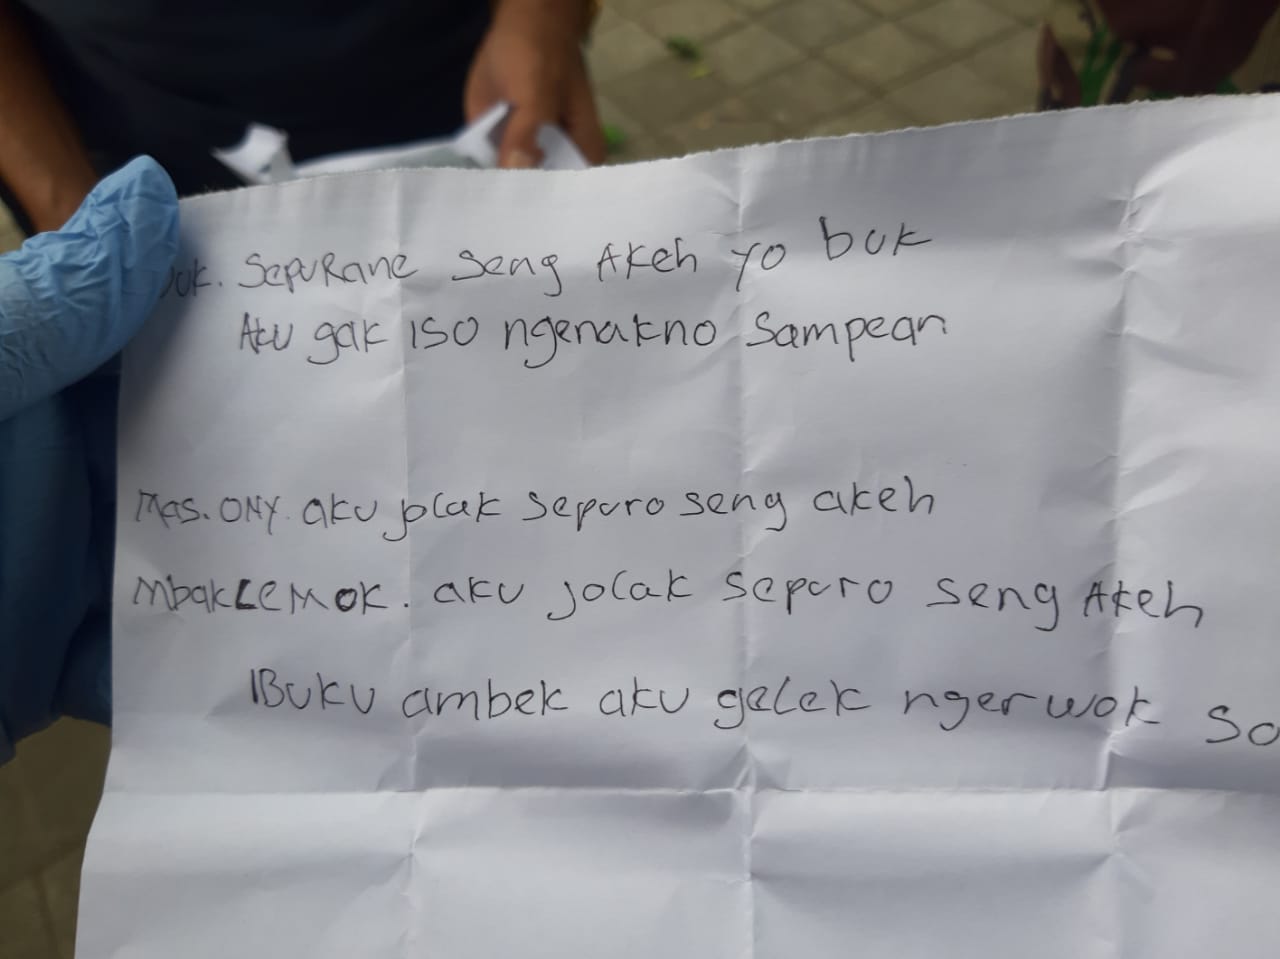 buk. Sepurane seng Akeh yo buk
Aku gak iso ngenakno Sampean
Mas. ONY. aku jolak sepuro seng akeh
Mbak LEMOK. aku jolak sepuro seng Akeh
IBuku ambek aku gelek ngerwok so